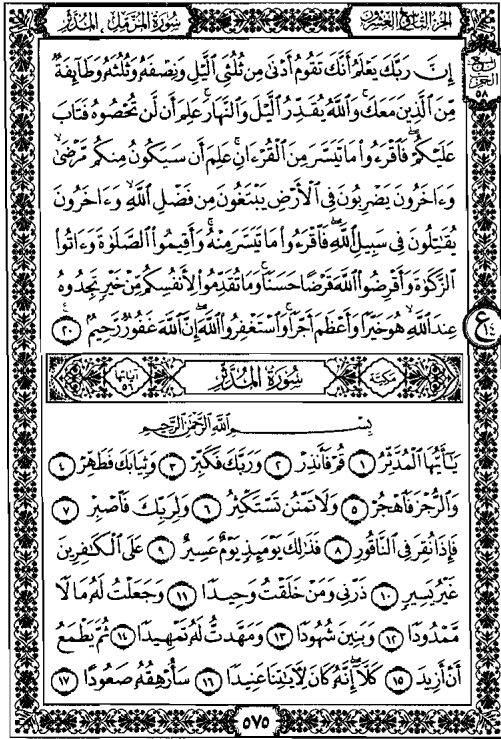 الجزء التاسع والعشرون
سورة المزمل ، المدثر
ربع
الحزب
٥٨
إِنَّ رَبَّكَ يَعْلَمُ أَنَّكَ تَقُومُ أَدْنَىٰ مِن ثُلُثَيِ ٱلَّيْلِ وَنِصْفَهُۥ وَثُلُثَهُۥ وَطَآئِفَةٌ
مِّنَ ٱلَّذِينَ مَعَكَ ۚ وَٱللَّهُ يُقَدِّرُ ٱلَّيْلَ وَٱلنَّهَارَ ۚ عَلِمَ أَن لَّن تُحْصُوهُ فَتَابَ
عَلَيْكُمْ ۖ فَٱقْرَءُوا۟ مَا تَيَسَّرَ مِنَ ٱلْقُرْءَانِ ۚ عَلِمَ أَن سَيَكُونُ مِنكُم مَّرْضَىٰ ۙ
وَءَاخَرُونَ يَضْرِبُونَ فِى ٱلْأَرْضِ يَبْتَغُونَ مِن فَضْلِ ٱللَّهِ ۙ وَءَاخَرُونَ
يُقَـٰتِلُونَ فِى سَبِيلِ ٱللَّهِ ۖ فَٱقْرَءُوا۟ مَا تَيَسَّرَ مِنْهُ ۚ وَأَقِيمُوا۟ ٱلصَّلَوٰةَ وَءَاتُوا۟
ٱلزَّكَوٰةَ وَأَقْرِضُوا۟ ٱللَّهَ قَرْضًا حَسَنًا ۚ وَمَا تُقَدِّمُوا۟ لِأَنفُسِكُم مِّنْ خَيْرٍ تَجِدُوهُ
عِندَ ٱللَّهِ هُوَ خَيْرًا وَأَعْظَمَ أَجْرًا ۚ وَٱسْتَغْفِرُوا۟ ٱللَّهَ ۖ إِنَّ ٱللَّهَ غَفُورٌ رَّحِيمٌۢ ٢٠
ع
١٤
مكية
سُورَةُ المُدَّثِّر
آياتها ٥٦
بِسْمِ ٱللَّهِ ٱلرَّحْمَـٰنِ ٱلرَّحِيمِ
يَـٰٓأَيُّهَا ٱلْمُدَّثِّرُ ١ قُمْ فَأَنذِرْ ٢ وَرَبَّكَ فَكَبِّرْ ٣ وَثِيَابَكَ فَطَهِّرْ ٤
وَٱلرُّجْزَ فَٱهْجُرْ ٥ وَلَا تَمْنُن تَسْتَكْثِرُ ٦ وَلِرَبِّكَ فَٱصْبِرْ ٧
فَإِذَا نُقِرَ فِى ٱلنَّاقُورِ ٨ فَذَٰلِكَ يَوْمَئِذٍ يَوْمٌ عَسِيرٌ ٩ عَلَى ٱلْكَـٰفِرِينَ
غَيْرُ يَسِيرٍ ١٠ ذَرْنِى وَمَنْ خَلَقْتُ وَحِيدًا ١١ وَجَعَلْتُ لَهُۥ مَالًا
مَّمْدُودًا ١٢ وَبَنِينَ شُهُودًا ١٣ وَمَهَّدتُّ لَهُۥ تَمْهِيدًا ١٤ ثُمَّ يَطْمَعُ
أَنْ أَزِيدَ ١٥ كَلَّآ ۖ إِنَّهُۥ كَانَ لِـَٔايَـٰتِنَا عَنِيدًا ١٦ سَأُرْهِقُهُۥ صَعُودًا ١٧
٥٧٥